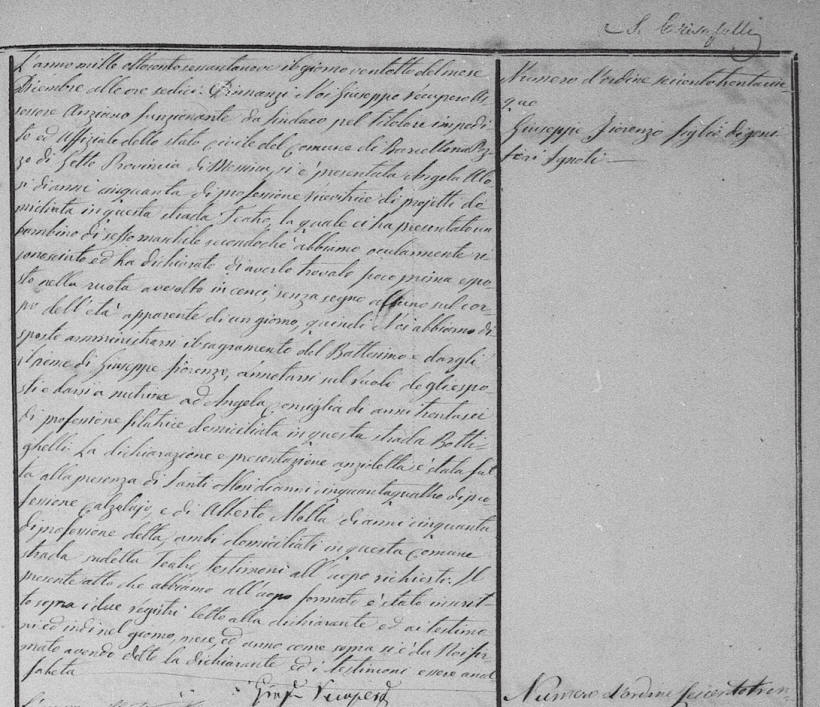 S. Crisafulli
L'anno mille ottocento sessantanove il giorno ventotto del mese
Dicembre alle ore sedici. Dinanzi Noi Giuseppe Recupero As-
sessore Anziano funzionante da Sindaco pel titolare impedi-
to ed Uffiziale dello stato civile del Comune di Barcellona Poz-
zo di Gotto Provincia di Messina, si è presentata Angela
si di anni cinquanta di professione ricevitrice di projetti do
miciliata in questa strada Teatro, la quale ci ha presentato un
bambino di sesso maschile secondochè abbiamo ocularmente ri
conosciuto ed ha dichiarato di averlo trovato poco prima espo
sto nella ruota avvolto in cenci, senza segno alcuno sul cor-
po dell'età apparente di un giorno, quindi Noi abbiamo di
sposto amministrarsi il sagramento del Battesimo e dargli
il nome di Giuseppe Fiorenzo, annotarsi sul ruolo degli espo-
sti e darsi a nutrire ad Angela Consiglia di anni trentasei
di professione filatrice domiciliata in questa strada Botti-
ghelli. La dichiarazione e presentazione anzidetta è stata fat
ta alla presenza di Santi di anni cinquantaquattro di pro
fessione Calzolajo, e di Alberto Molta di anni cinquanta
di professione detta, ambi domiciliati in questa Comune
strada sudetta Teatro, testimoni all'uopo richiesti. Il
presente atto che abbiamo all'uopo formato è stato inscrit-
to sopra i due registri letto alla dichiarante ed ai testimo
ni ed indi nel giorno, mese, ed anno come sopra si è da Noi fir
mato avendo detto la dichiarante ed i testimoni essere anal
fabeta
Giuse Recupero
Numero d'ordine seicentotrentacin-
que
Giuseppe Fiorenzo figlio di geni-
tori Ignoti
Numero d'ordine seicentotren-